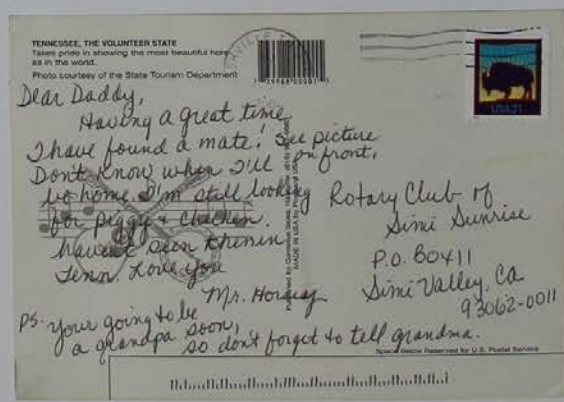 TENNESSEE, THE VOLUNTEER STATE
Takes pride in showing the most beautiful
as in the world.
Photo courtesy of the State Tourism Department
Dear Daddy,
Having a great time
I have found a mate! See picture
on front.
Don't know when I'll
be home. I'm still looking
for piggy & chicken.
haven't seen them in
Tenn. Love you
Mr. Horsey
PS. your going to be
a grandpa soon,
so don't forget to tell grandma.
USA21
Rotary Club of
Simi Sunrise
P.O. 80411
Simi Valley, Ca
93062-0011
MADE IN USA
Space Below Reserved for U.S. Postal Service